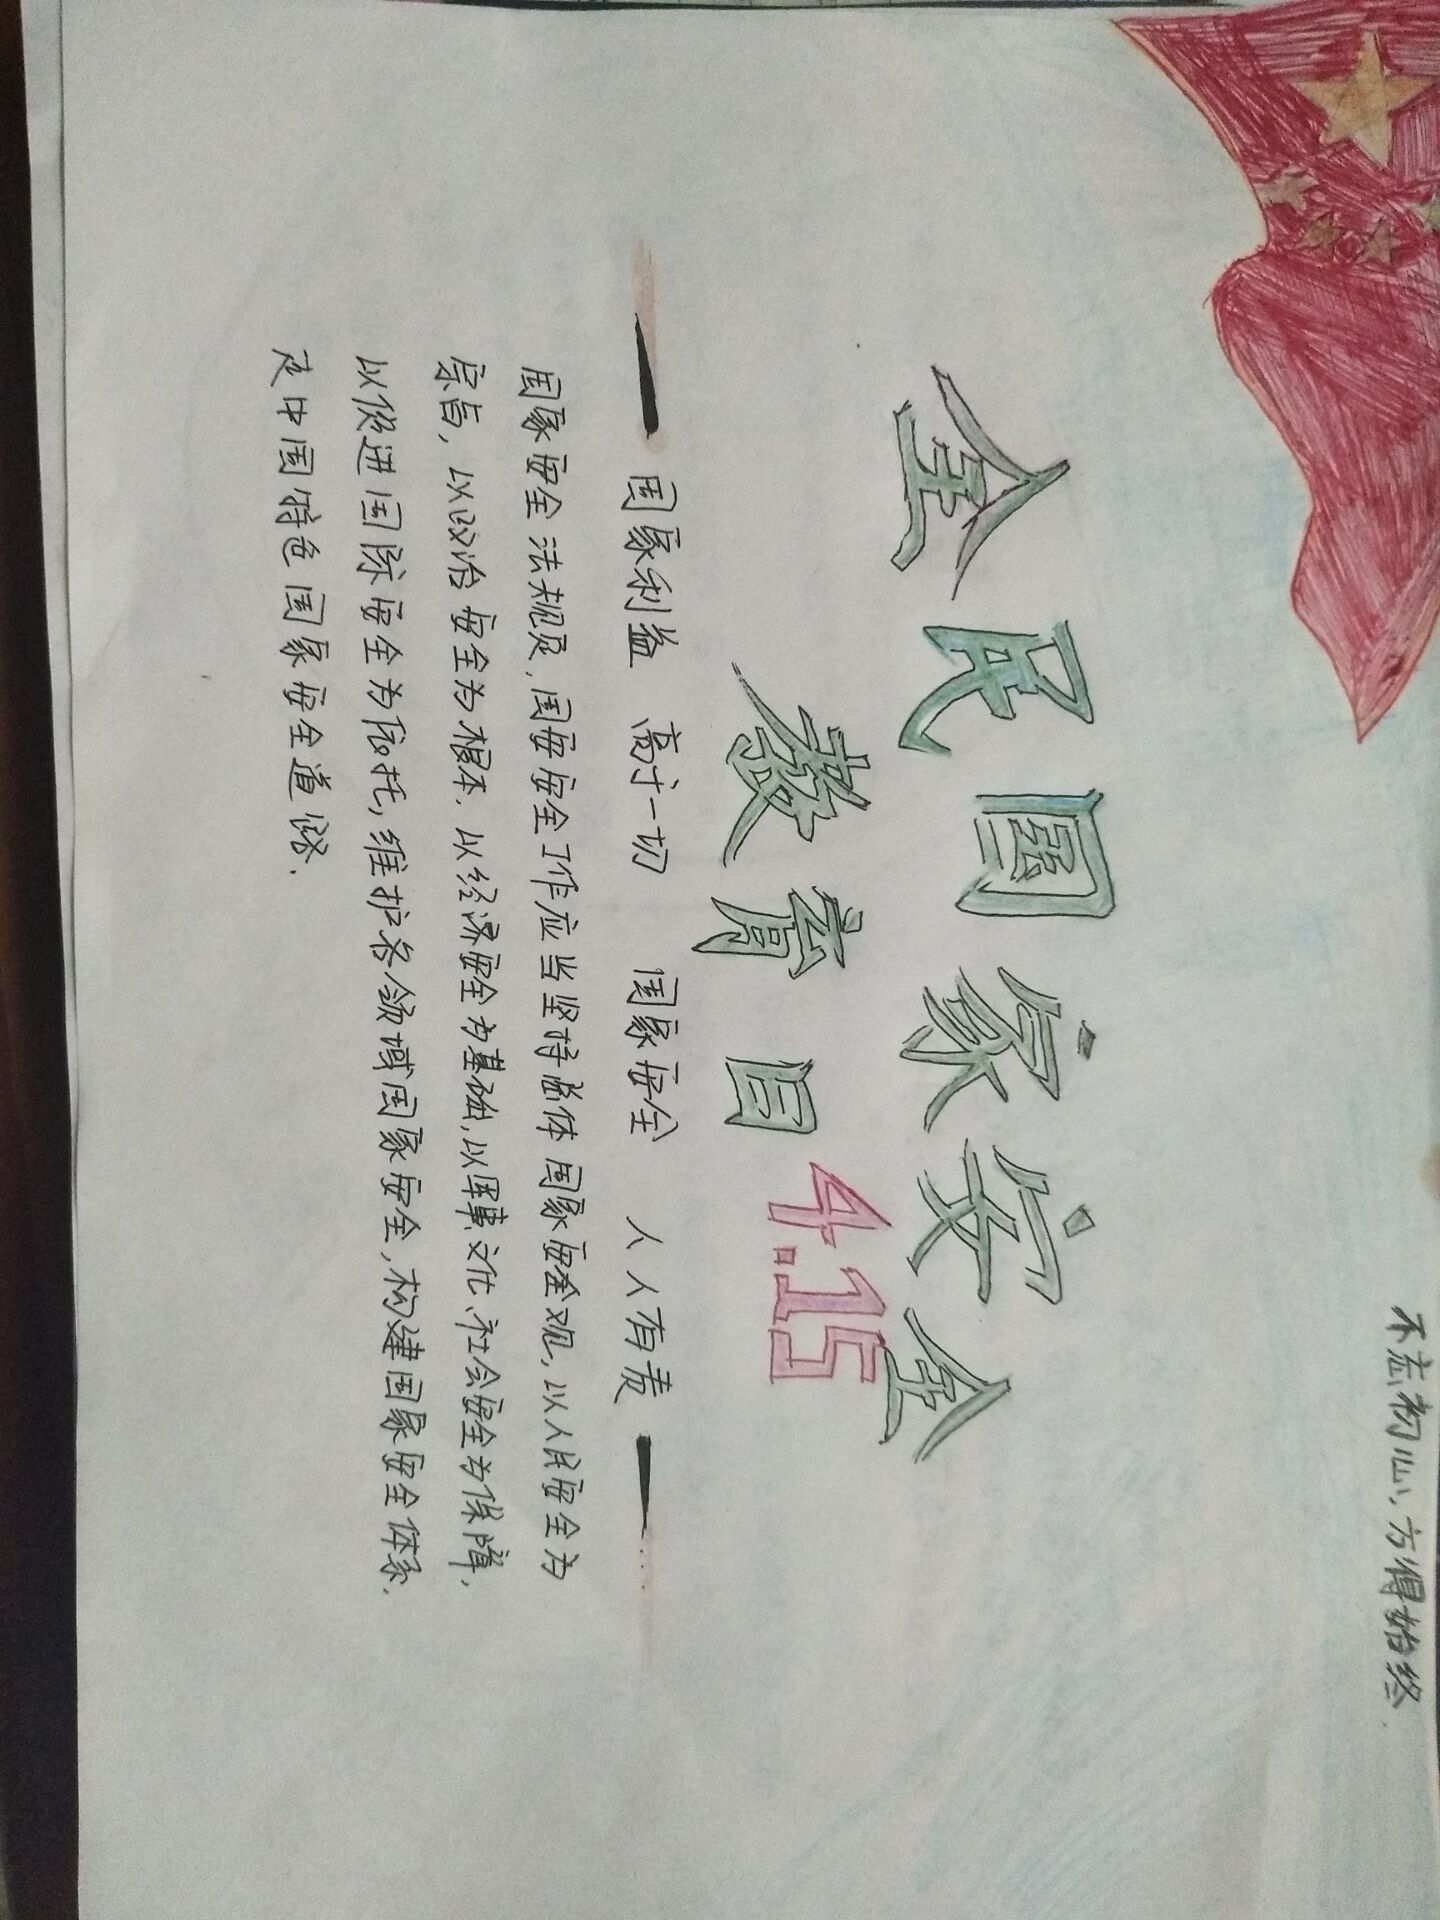 不忘初心，方得始终
全民国家安全
教育日4.15
国家利益 高于一切 国家安全 人人有责
国家安全法规定，国安安全工作应当坚持总体国家安全观，以人民安全为
宗旨，以政治安全为根本，以经济安全为基础，以军事、文化、社会安全为保障，
以促进国际安全为依托，维护各领域国家安全，构建国家安全体系，
走中国特色国家安全道路.